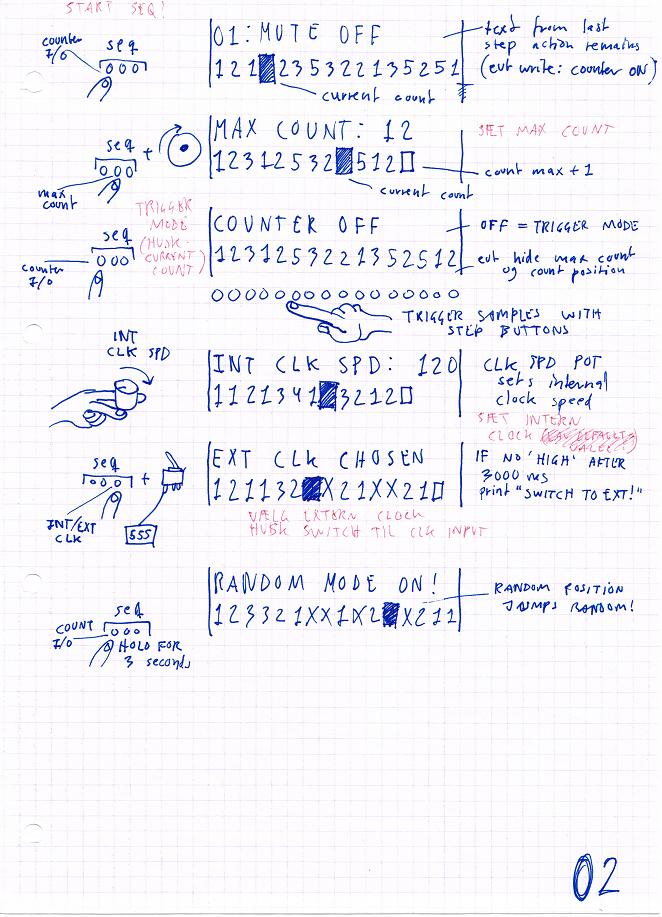 START SEQ!
counter
I/O
seq
01: MUTE OFF
1 2 1 2 3 5 3 2 2 1 3 5 2 5 1
current count
text from last
step action remains
(evt write: counter ON)
seq
+
max
count
MAX COUNT: 12
1 2 3 1 2 5 3 2 5 1 2
current count
SET MAX COUNT
count max + 1
TRIGGER
MODE
(HUSK
CURRENT
COUNT)
seq
counter
I/O
COUNTER OFF
1 2 3 1 2 5 3 2 2 1 3 5 2 5 1 2
OFF = TRIGGER MODE
evt hide max count
og count position
TRIGGER SAMPLES WITH
STEP BUTTONS
INT
CLK SPD
INT CLK SPD: 120
1 1 2 1 3 4 1 3 2 1 2
CLK SPD POT
sets internal
clock speed
SET INTERN
CLOCK
seq
+
INT/EXT
CLK
555
EXT CLK CHOSEN
1 2 1 1 3 2 X 2 1 X X 2 1
IF NO 'HIGH' AFTER
3000 ms
print "SWITCH TO EXT!"
VÆLG EXTERN CLOCK
HUSK SWITCH TIL CLK INPUT
seq
COUNT
I/O
HOLD FOR
3 seconds
RANDOM MODE ON!
1 2 3 3 2 1 X X 1 X 2 X 2 1 1
RANDOM POSITION
JUMPS RANDOM!
02